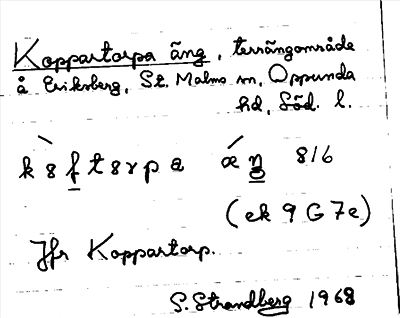 Koppartorpa äng, terrängområde
å Eriksberg, St. Malms sn, Oppunda
hd, Söd. l.
k 8 f t 8 r p a æ ŋ 816
(ek 9 G 7e)
Jfr Koppartorp.
S. Strandberg 1968